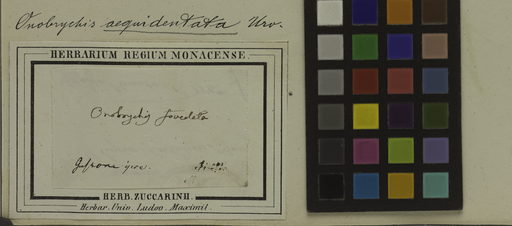 Onobrychis aequidentata Urv.
HERBARIUM REGIUM MONACENSE.
Onobrychis foveolata
HERB. ZUCCARINII.
Herbar. Univ. Ludov. Maximil.